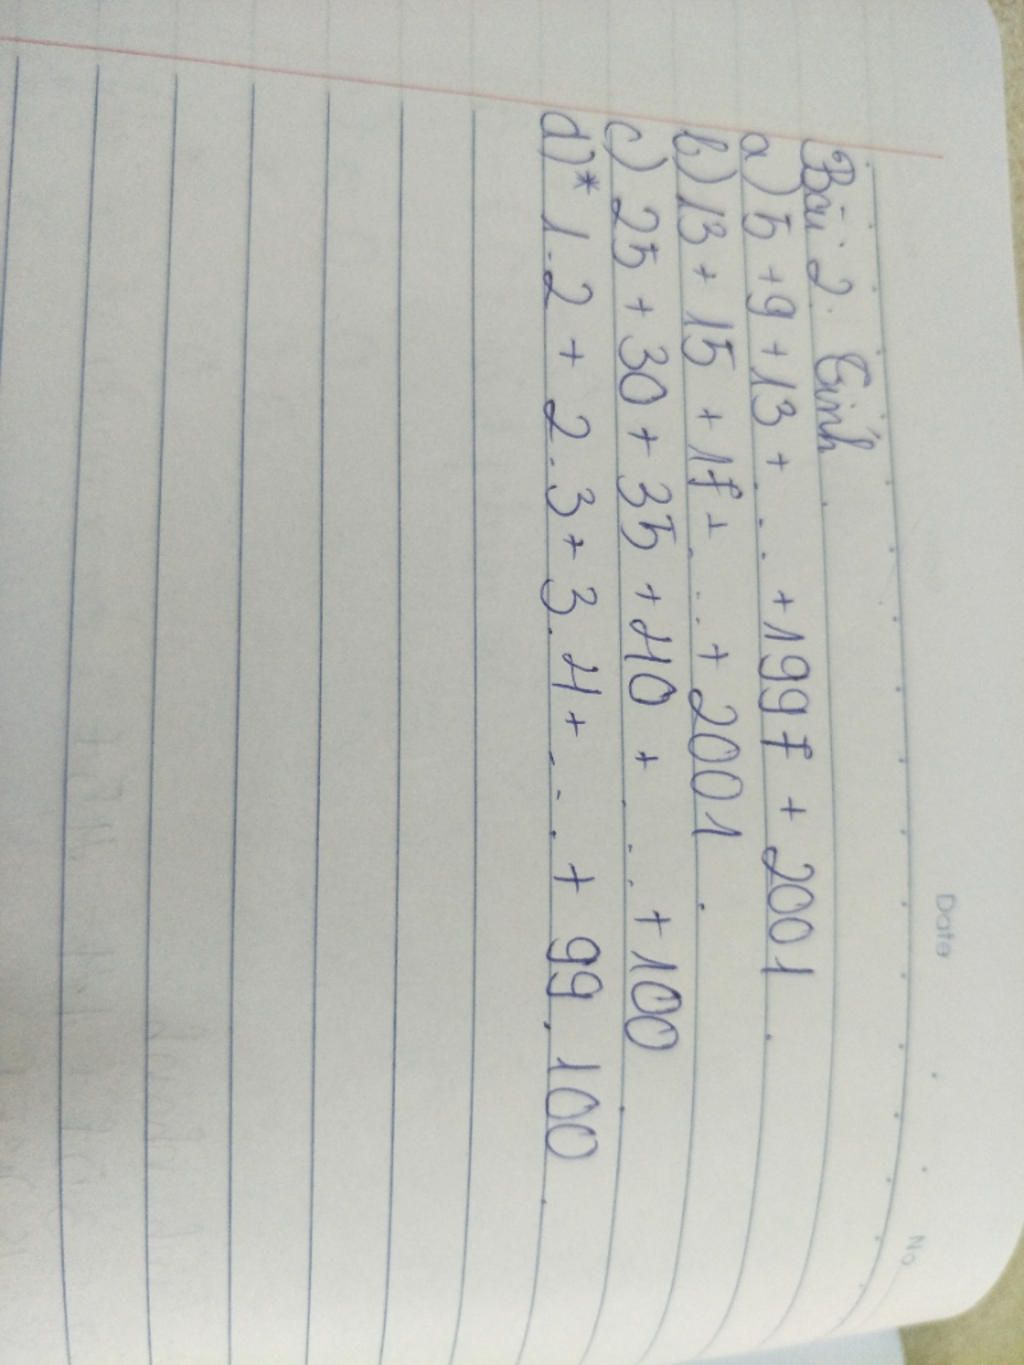 Date
No
Bài 2. Tính
a) 5 + 9 + 13 + ... + 1997 + 2001.
b) 13 + 15 + 17 + ... + 2001.
c) 25 + 30 + 35 + 40 + ... + 100.
d)* 1.2 + 2.3 + 3.4 + ... + 99.100.